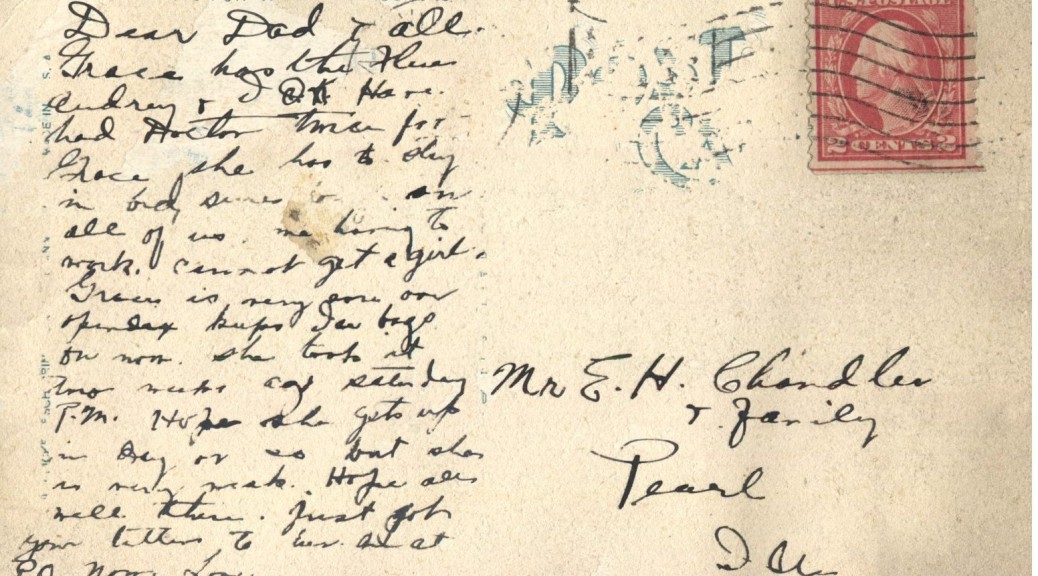 Dear Dad & all.
Grace has the Flue
Audrey & I O.K. Have
had Doctor twice for
Grace she has to stay
in bed, on
all of us. me having to
work. cannot get a girl.
Grace is very sore over
apendax keeps Ice bags
on now. she took it
two weeks ago saturday
P.M. Hope she gets up
in day or so but she
is very weak. Hope all
well there. Just got
your letters to at
P.O. Now. Love
U.S. POSTAGE
2 CENTS 2
POST
Mr E. H. Chandler
& Family
Pearl
Ill